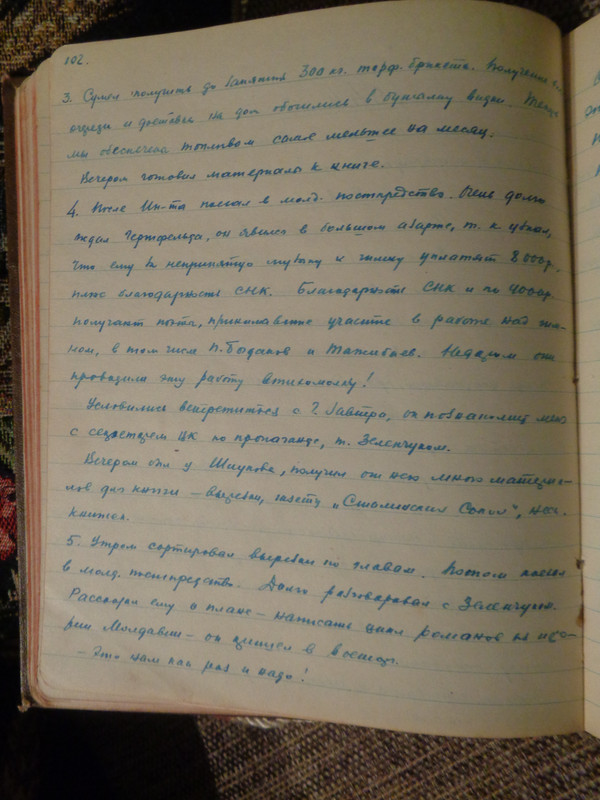 102.
3. Сумел получить до занятий 300 кг. торф. брикета. Получение вне
очереди и доставка на дом обошлись в бутылку водки. Теперь
мы обеспечены топливом самое меньшее на месяц.
Вечером готовил материалы к книге.
4. После Ин-та поехал в молд. постпредство. Очень долго
ждал Гертфельда, он явился в большом азарте, т. к. узнал,
что ему за непринятую музыку к гимну уплатят 8000 р.
плюс благодарность СНК. Благодарность СНК и по 4000 р.
получают поэты, принимавшие участие в работе над гим-
ном, в том числе и Тажибаев. Недаром они
проводили эту работу втихомолку!
Условились встретиться с Г. завтра, он познакомит меня
с секретарем ЦК по пропаганде, т. Зеленчуком.
Вечером был у Шиукова, получил от него много материа-
лов для книги — вырезки, газету „Сталинский Сокол“, неск.
книжек.
5. Утром сортировал вырезки по главам. Потом поехал
в молд. постпредство. Долго разговаривал с Зеленчуком.
Рассказал ему о плане — написать цикл романов из исто-
рии Молдавии — он пришел в восторг.
— Это нам как раз и надо!